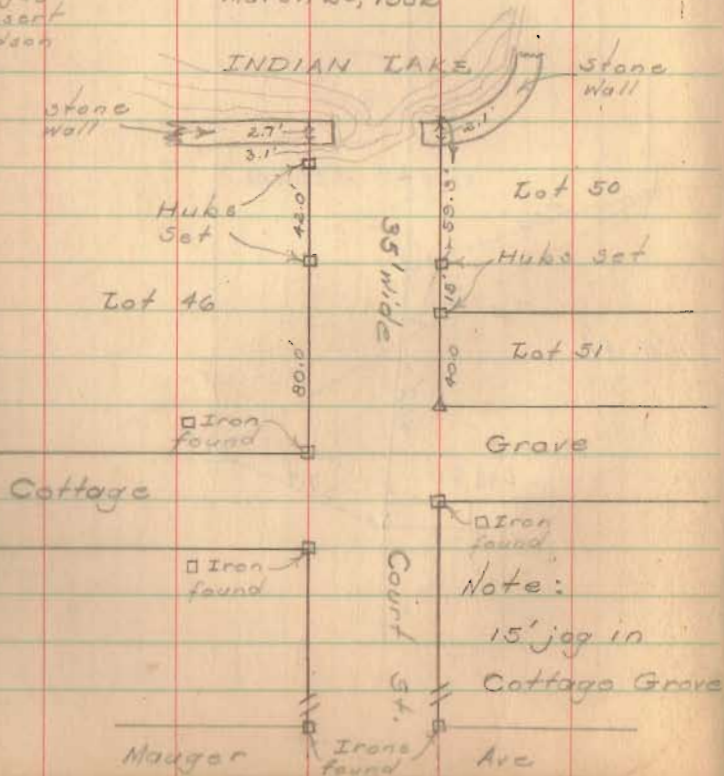 INDIAN LAKE
Stone
Wall
Stone
Wall
2.7'
3.1'
2.1'
Lot 50
Hubs
Set
42.0'
53.3'
35' wide
Hubs Set
18'
Lot 46
Lot 51
80.0'
40.0
□ Iron
found
Grove
Cottage
□ Iron
found
□ Iron
found
Court St.
Note:
15' jog in
Cottage Grove
Mauger
Irons
found
Ave